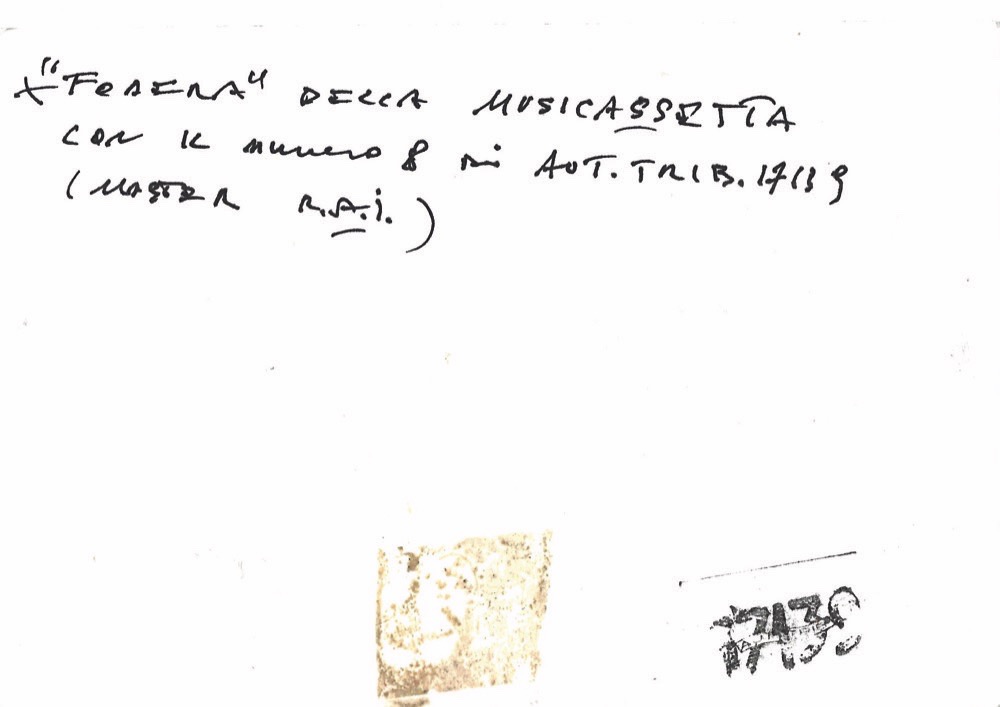 x "FODERA" DELLA MUSICASSETTA
CON IL NUMERO 8 DI AUT. TRIB. 17139
(MASTER R.A.I.)
17139